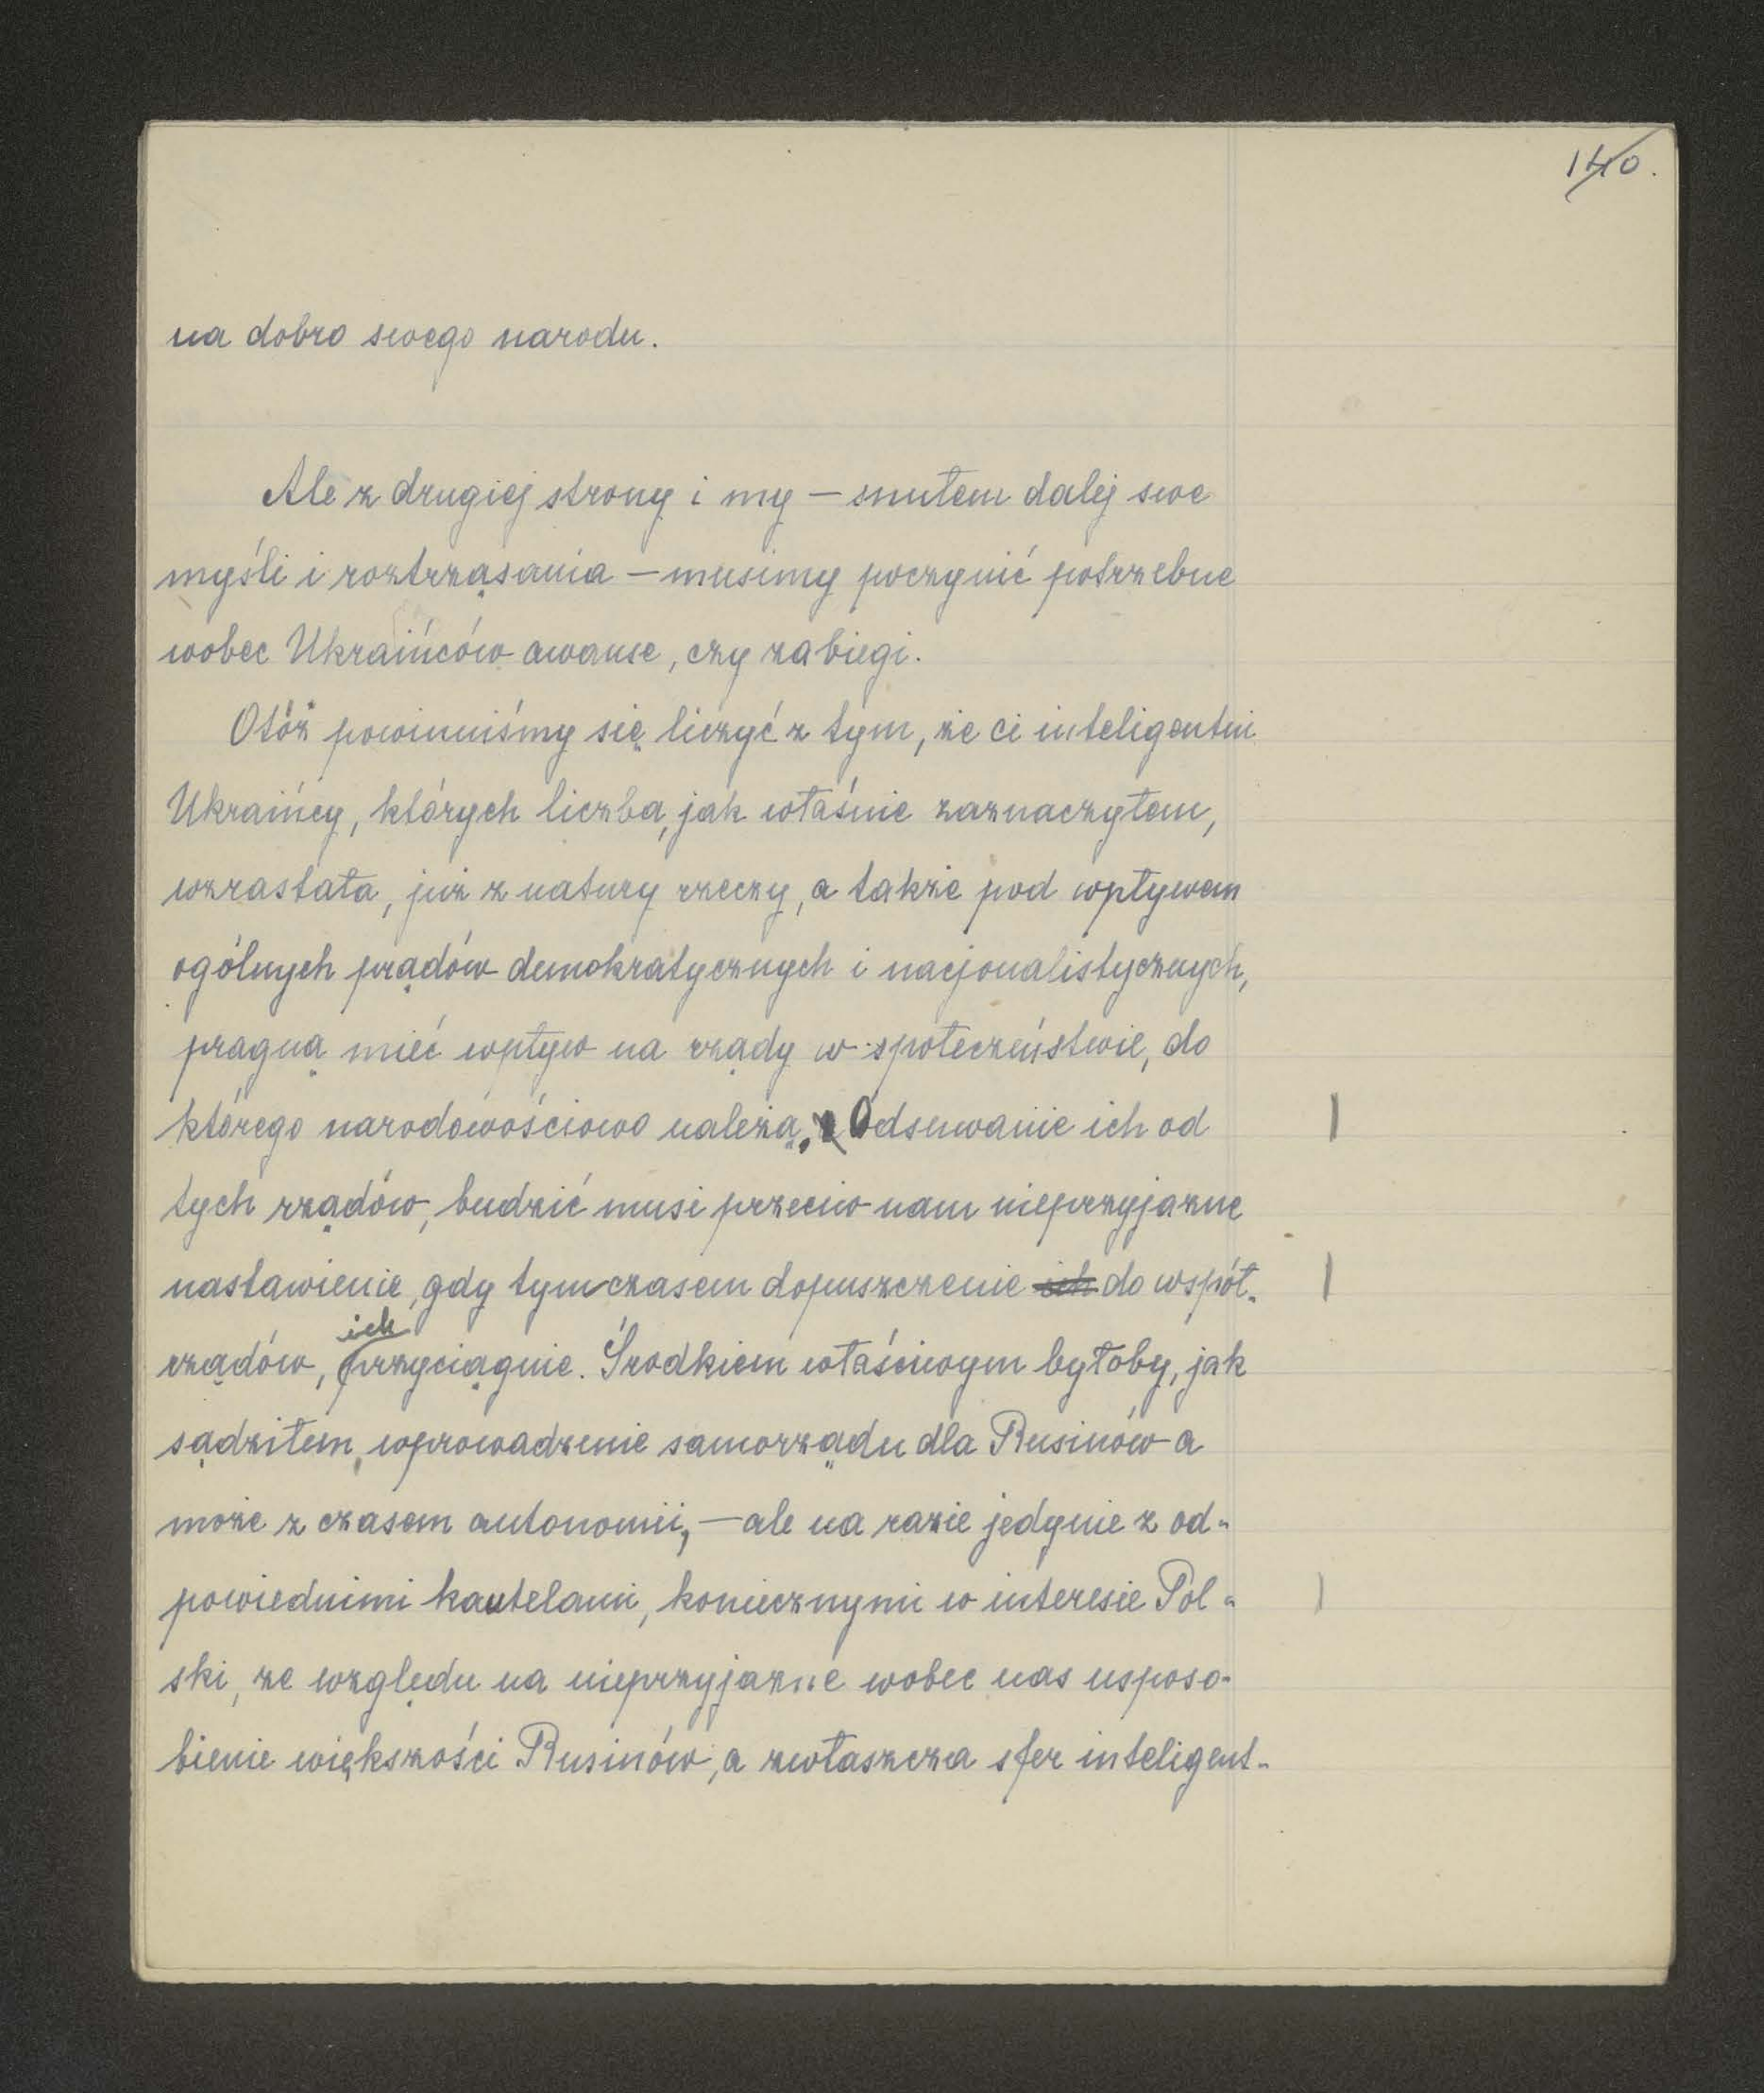 140.
na dobro swego narodu.
Ale z drugiej strony i my — snułem dalej swe
myśli i roztrząsania — musimy poczynić potrzebne
wobec Ukraińców awanse, czy zabiegi.
Otóż powinniśmy się liczyć z tym, że ci inteligentni
Ukraińcy, których liczba, jak właśnie zaznaczyłem,
wzrastała, już z natury rzeczy, a także pod wpływem
ogólnych prądów demokratycznych i nacjonalistycznych,
pragną mieć wpływ na rządy w społeczeństwie, do
którego narodowościowo należą. Odsuwanie ich od
tych rządów, budzić musi przeciw nam nieprzyjazne
nastawienie, gdy tymczasem dopuszczenie ich do współ-
ich
rządów, przyciągnie. Środkiem właściwym byłoby, jak
sądziłem, wprowadzenie samorządu dla Rusinów a
może z czasem autonomii, — ale na razie jedynie z od-
powiednimi kautelami, koniecznymi w interesie Pol-
ski, ze względu na nieprzyjazne wobec nas usposo-
bienie większości Rusinów, a zwłaszcza sfer inteligent-